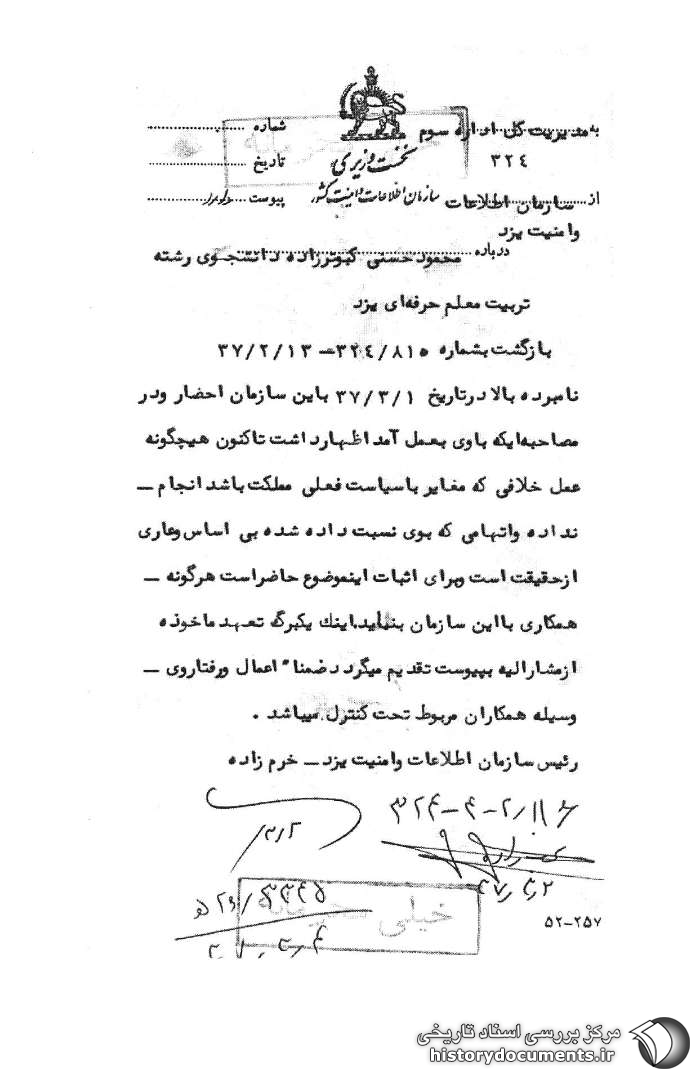 به مدیریت کل اداره سوم
۳۲٤
از سازمان اطلاعات
وامنیت یزد
نخست وزیری
سازمان اطلاعات و امنیت کشور
شماره
تاریخ
پیوست دارد
خیلی محرمانه
درباره محمود حسنی کبوترزاده دانشجوی رشته
تربیت معلم حرفه‌ای یزد
بازگشت بشماره ۳۲٤/۸۱۵ – ۳۷/۲/۱۳
نامبرده بالا درتاریخ ۳۷/۳/۱ باین سازمان احضار ودر
مصاحبه‌ایکه باوی بعمل آمد اظهارداشت تاکنون هیچگونه
عمل خلافی که مغایر باسیاست فعلی مملکت باشد انجام –
نداده واتهامی که بوی نسبت داده شده بی اساس وعاری
ازحقیقت است وبرای اثبات اینموضوع حاضراست هرگونه –
همکاری بااین سازمان بنماید.اینك یکبرگ تعهد ماخوذه
ازمشارالیه بپیوست تقدیم میگردد ضمنا" اعمال ورفتاروی –
وسیله همکاران مربوط تحت کنترل میباشد .
رئیس سازمان اطلاعات وامنیت یزد – خرم زاده
خیلی محرمانه
۵۲-۲۵۷
مرکز بررسی اسناد تاریخی
historydocuments.ir